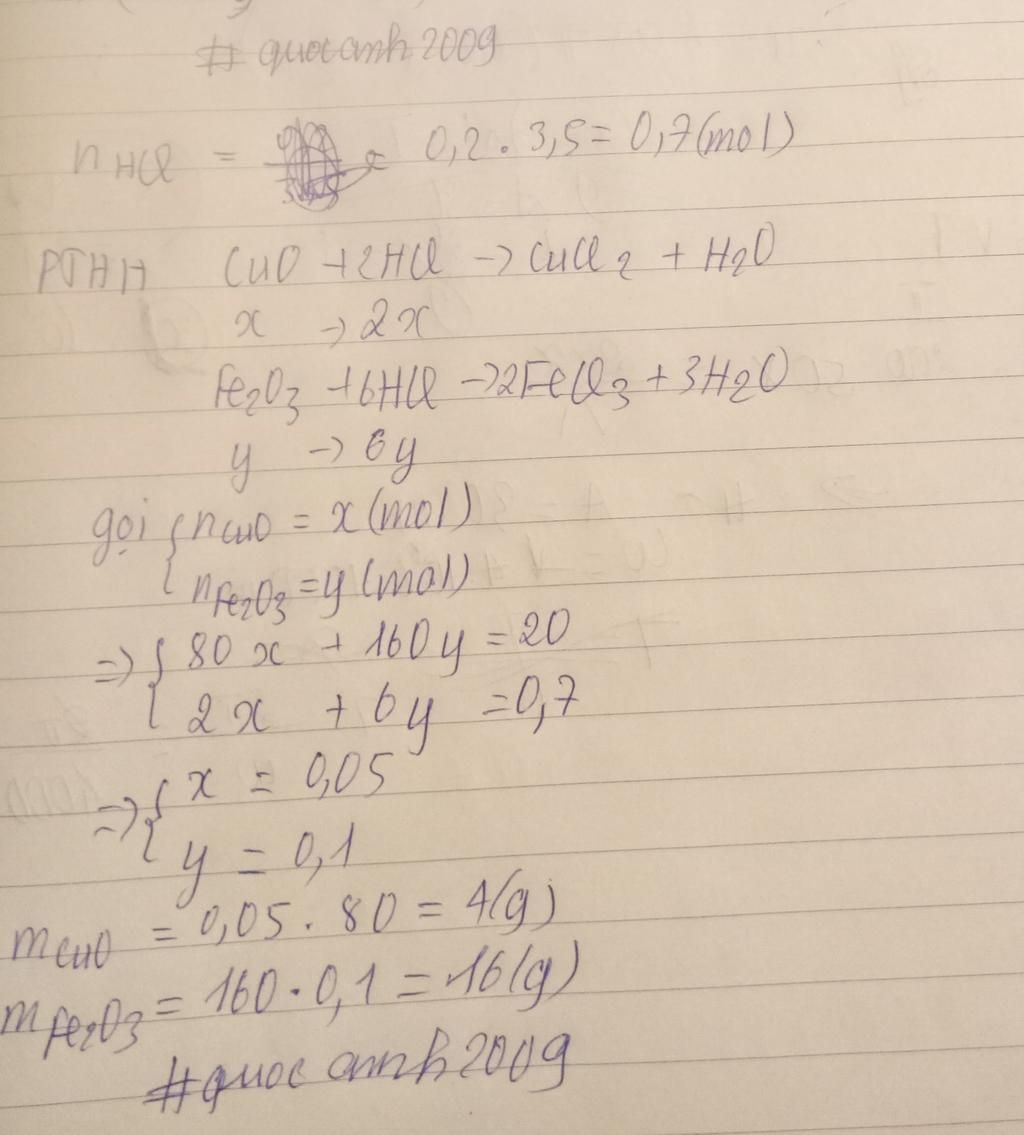 # quocanh2009
nHCl = = 0,2 . 3,5 = 0,7 (mol)
PTHH CuO + 2HCl -> CuCl2 + H2O
x -> 2x
Fe2O3 + 6HCl -> 2FeCl3 + 3H2O
y -> 6y
gọi { nCuO = x (mol)
nFe2O3 = y (mol)
=> { 80x + 160y = 20
2x + 6y = 0,7
=> { x = 0,05
y = 0,1
mCuO = 0,05 . 80 = 4 (g)
mFe2O3 = 160 . 0,1 = 16 (g)
#quoc anh 2009